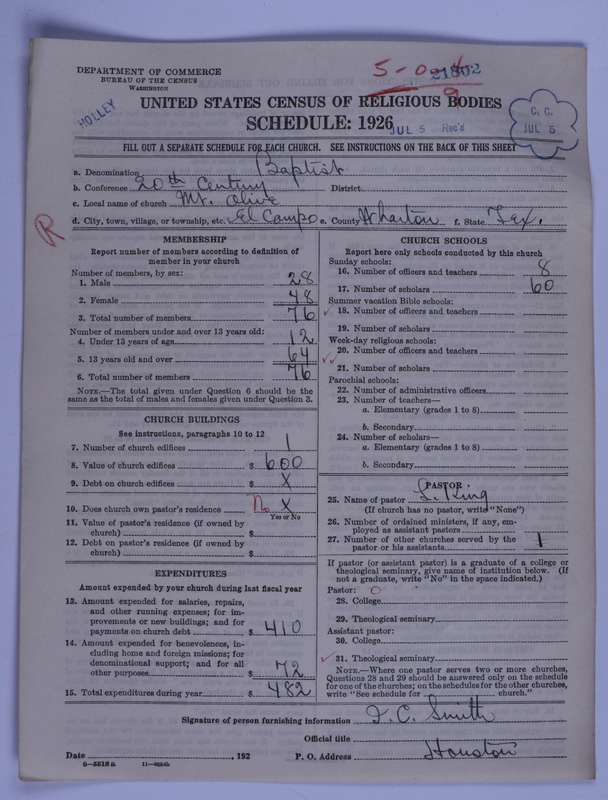 DEPARTMENT OF COMMERCE
BUREAU OF THE CENSUS
WASHINGTON
5-0-4
21802
9
HOLLEY
UNITED STATES CENSUS OF RELIGIOUS BODIES
SCHEDULE: 1926
JUL 5 Rec'd
C. C.
JUL 5
FILL OUT A SEPARATE SCHEDULE FOR EACH CHURCH. SEE INSTRUCTIONS ON THE BACK OF THIS SHEET
a. Denomination Baptist
b. Conference 20th Century District
c. Local name of church Mt. Olive
d. City, town, village, or township, etc. El Campo e. County Wharton f. State Tex.
R
MEMBERSHIP
Report number of members according to definition of
member in your church
Number of members, by sex:
1. Male 28
2. Female 48
3. Total number of members 76
Number of members under and over 13 years old:
4. Under 13 years of age 12
5. 13 years old and over 64
6. Total number of members 76
NOTE.—The total given under Question 6 should be the
same as the total of males and females given under Question 3.
CHURCH BUILDINGS
See instructions, paragraphs 10 to 12
7. Number of church edifices 1
8. Value of church edifices $ 600
9. Debt on church edifices $ X
10. Does church own pastor's residence No X
Yes or No
11. Value of pastor's residence (if owned by
church) $
12. Debt on pastor's residence (if owned by
church) $
EXPENDITURES
Amount expended by your church during last fiscal year
13. Amount expended for salaries, repairs,
and other running expenses; for im-
provements or new buildings; and for
payments on church debt $ 410
14. Amount expended for benevolences, in-
cluding home and foreign missions; for
denominational support; and for all
other purposes $ 72
15. Total expenditures during year $ 482
CHURCH SCHOOLS
Report here only schools conducted by this church
Sunday schools:
16. Number of officers and teachers 8
17. Number of scholars 60
Summer vacation Bible schools:
18. Number of officers and teachers
19. Number of scholars
Week-day religious schools:
20. Number of officers and teachers
21. Number of scholars
Parochial schools:
22. Number of administrative officers
23. Number of teachers—
a. Elementary (grades 1 to 8)
b. Secondary
24. Number of scholars—
a. Elementary (grades 1 to 8)
b. Secondary
PASTOR
25. Name of pastor L. King
(If church has no pastor, write "None")
26. Number of ordained ministers, if any, em-
ployed as assistant pastors
27. Number of other churches served by the
pastor or his assistants 1
If pastor (or assistant pastor) is a graduate of a college or
theological seminary, give name of institution below. (If
not a graduate, write "No" in the space indicated.)
Pastor: O
28. College
29. Theological seminary
Assistant pastor:
30. College
31. Theological seminary
NOTE.—Where one pastor serves two or more churches,
Questions 28 and 29 should be answered only on the schedule
for one of the churches; on the schedules for the other churches,
write "See schedule for church."
Signature of person furnishing information I. C. Smith
Official title
Date , 192 P. O. Address Houston
8-5518 a 11-9054b